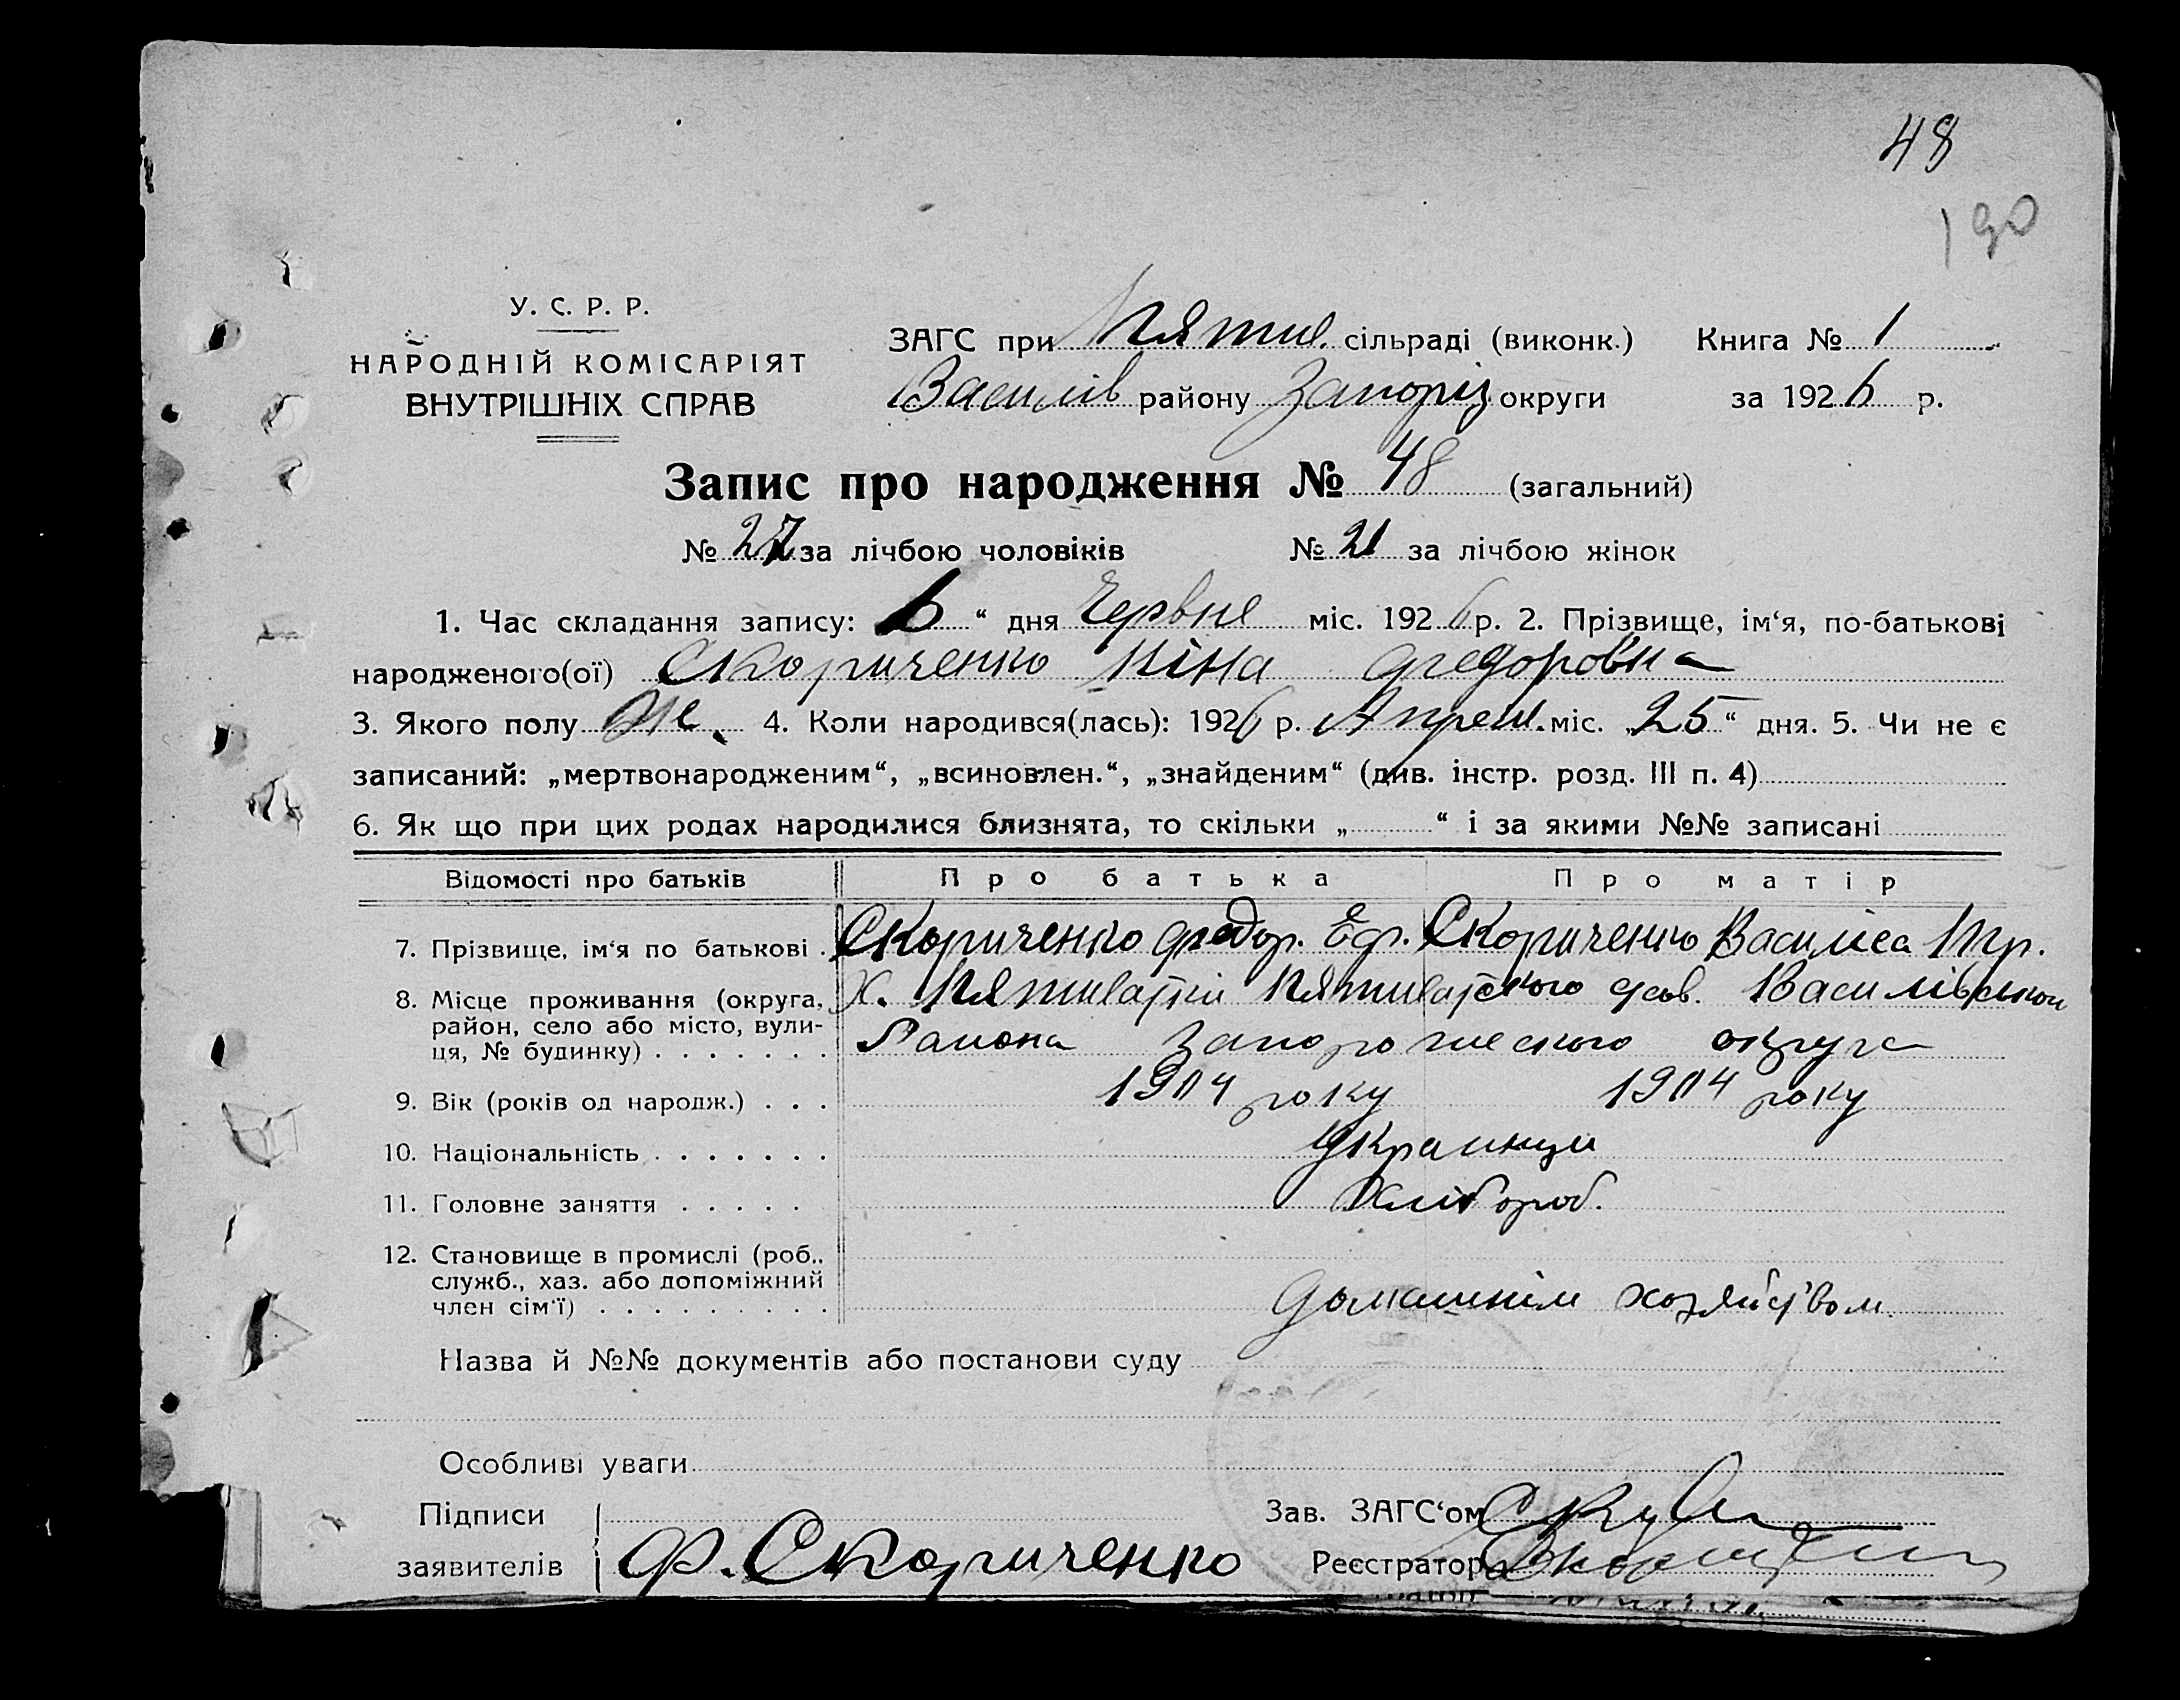 48
190
У. С. Р. Р.
НАРОДНІЙ КОМІСАРІЯТ
ВНУТРІШНІХ СПРАВ
ЗАГС при Пятих. сільраді (виконк.) Книга № 1
Василів району Запоріз. округи за 1926 р.
Запис про народження № 48 (загальний)
№ 27 за лічбою чоловіків № 21 за лічбою жінок
1. Час складання запису: 6 “ дня Червня міс. 1926 р. 2. Прізвище, ім‘я, по-батькові
народженого(ої) Скориченко Ніна Федоровна
3. Якого полу Же. 4. Коли народився(лась): 1926 р. Апрел. міс. „25“ дня. 5. Чи не є
записаний: „мертвонародженим“, „всиновлен.“, „знайденим“ (див. інстр. розд. III п. 4)
6. Як що при цих родах народилися близнята, то скільки „ “ і за якими №№ записані
Відомості про батьків Про батька Про матір
7. Прізвище, ім‘я по батькові . Скориченко Федор. Еф. Скориченко Василіса
8. Місце проживання (округа, Х. Пятихатки Пятихатского Василівском
район, село або місто, вули- Района Запорожского округа
ця, № будинку) . . . . . . .
9. Вік (років од народж.) . . . 1904 року 1904 року
10. Національність . . . . . . . Украинци
11. Головне заняття . . . . . Хлібороб.
12. Становище в промислі (роб.,
служб., хаз. або допоміжний
член сім‘ї) . . . . . . . . . Домашнім хозяйством
Назва й №№ документів або постанови суду
Особливі уваги
Підписи Зав. ЗАГС‘ом
заявителів Ф. Скориченко Реєстратор